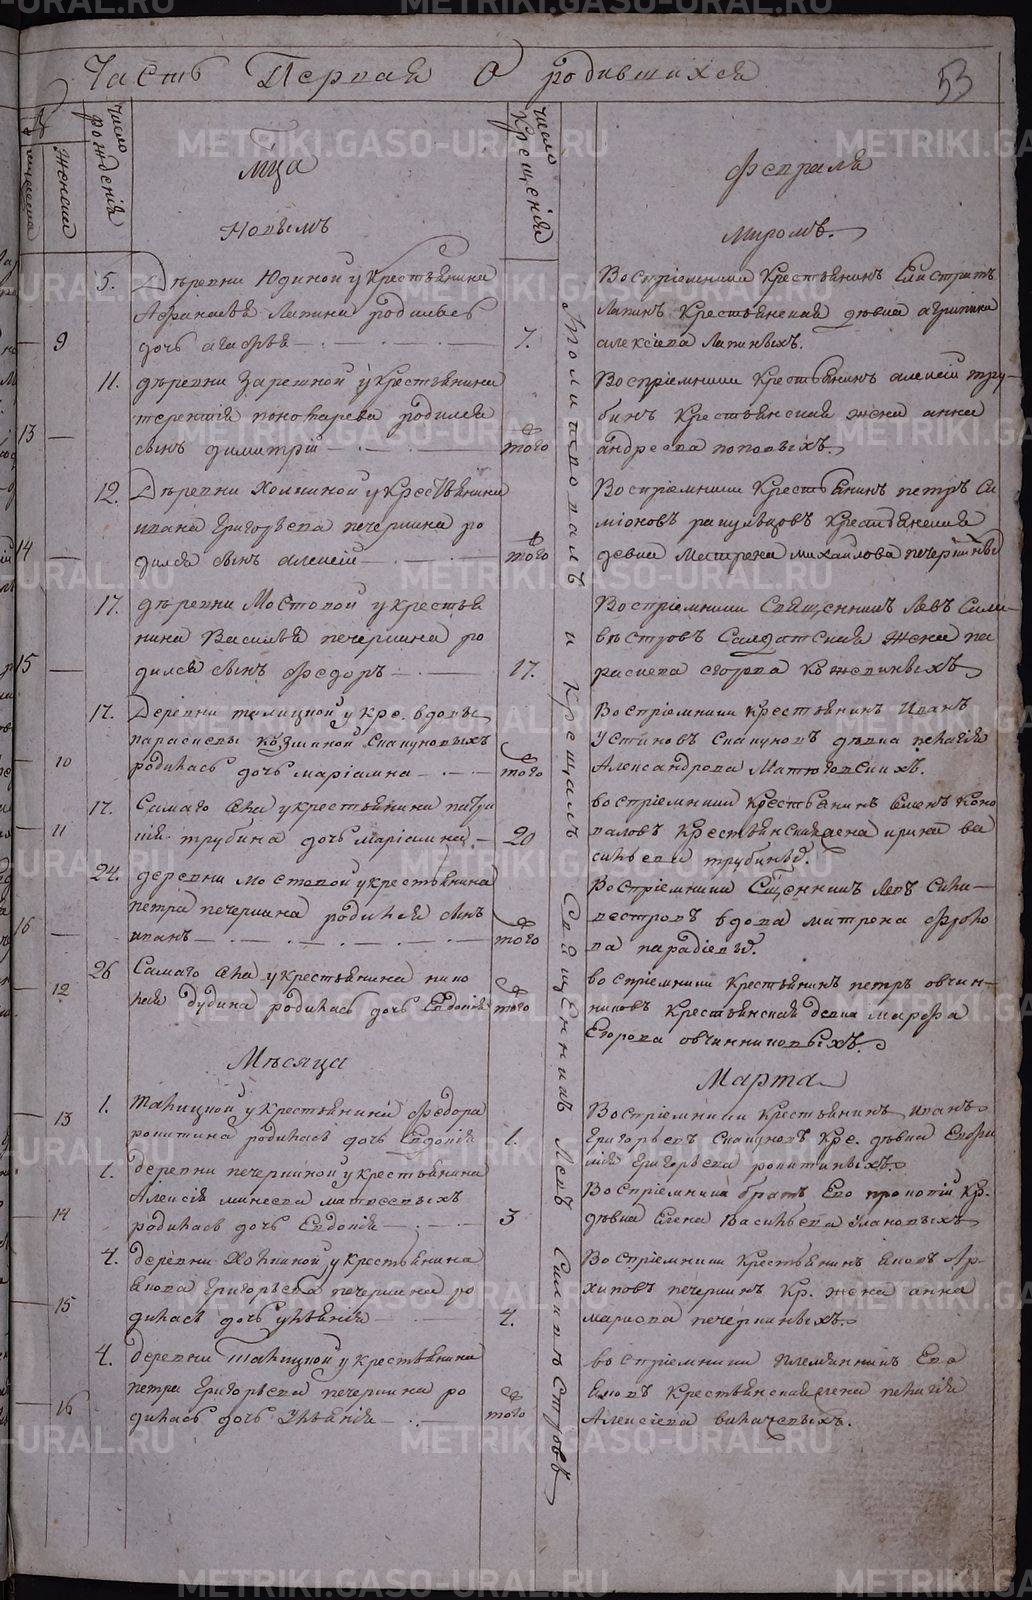 METRIKI.GASO-URAL.RU
Часть Первая О родившихся
53
число рожденїя
число Крещенїя
женска
Мца
Февраля
Новымъ
Миромъ.
Молитвовалъ и крещалъ Священникъ Левъ Силивестровъ
9
5.
Дѣревни Юдиной у Крестьянина
Афанасья Лапина родилась
дочь агафья
7.
Воспрїемники Крестьянинъ Евстратъ
Лапинъ Крестьянская дѣвка агрипина
алексѣева Лапиныхъ.
13
11.
дѣревни Заречной у крестьянина
терентїя родился
сынъ димитрїй
того
Воспрїемники Крестьянинъ алексїй тру-
бинъ Крестьянская жена анна
андреева поповыхъ.
14
12.
Дѣревни Холкиной у Крестьянина
ивана Григорьева печеркина ро
дился сынъ алексїй
того
Воспрїемники Крестьянинъ петръ Си
мїоновъ Крестьянская
девка Матрена михайлова печеркиныхъ
15
17.
дѣревни Мостовой у крестья
нина Василья печеркина ро
дился сынъ Федоръ
17.
Воспрїемники Священникъ Левъ Сили-
вестровъ Салдатская жена па
расковья егорова кожевиныхъ
10
17.
Деревни талицкой у кре. вдовы
парасковьи козминой Скакуновыхъ
родилась дочь марїамна
того
Воспрїемники крестьянинъ Иванъ
Устиновъ Скакуновъ дѣвка пелагїя
Александрова Матюговскихъ.
11
17.
Самаго села у крестьянина
трубина дочь марїамна
20
воспрїемники крестьянинъ Семенъ Коно
валовъ Крестьянская жена ирина ва
сильева трубиныхъ.
16
24.
деревни мостовой у крестьянина
петра печеркина родился сынъ
иванъ
того
Воспрїемники Сщенникъ Левъ Сили-
вестровъ вдова матрена фроло
ва
12
26
Самаго села у крестьянина нико
лая дудина родилась дочь Евдокїя
того
воспрїемники Крестьянинъ петръ овчин-
никовъ Крестьянская девка марфа
Егорова овчинниковыхъ.
Мѣсяца
Марта
13
1.
талицкой у крестьянина Федора
рокитина родилась дочь Евдокїя
1.
Воспрїемники крестьянинъ иванъ
Григорьевъ Скакуновъ Кре. дѣвка Евфи
мїя Григорьева рокитиныхъ.
14
1.
деревни печеркиной у крестьянина
Алексїя минеева матвеевыхъ
родилась дочь Евдокїя
3
Воспрїемники братъ Его прокопїй Кр.
дѣвка Елена Васильева Улановыхъ
15
4.
деревни Холкиной у крестьянина
Якова Григорьева печеркина ро
дилась дочь улянїя
4.
Воспрїемники Крестьянинъ Яковъ Ар-
хиповъ печеркинъ Кр. жена анна
маркова печеркиныхъ.
16
4.
деревни талицкой у крестьянина
петра Григорьева печеркина ро
дилась дочь Улянїя
того
воспрїемники племянникъ Его
Яковъ Крестьянская жена пелагїя
Алексїева вилачевыхъ.